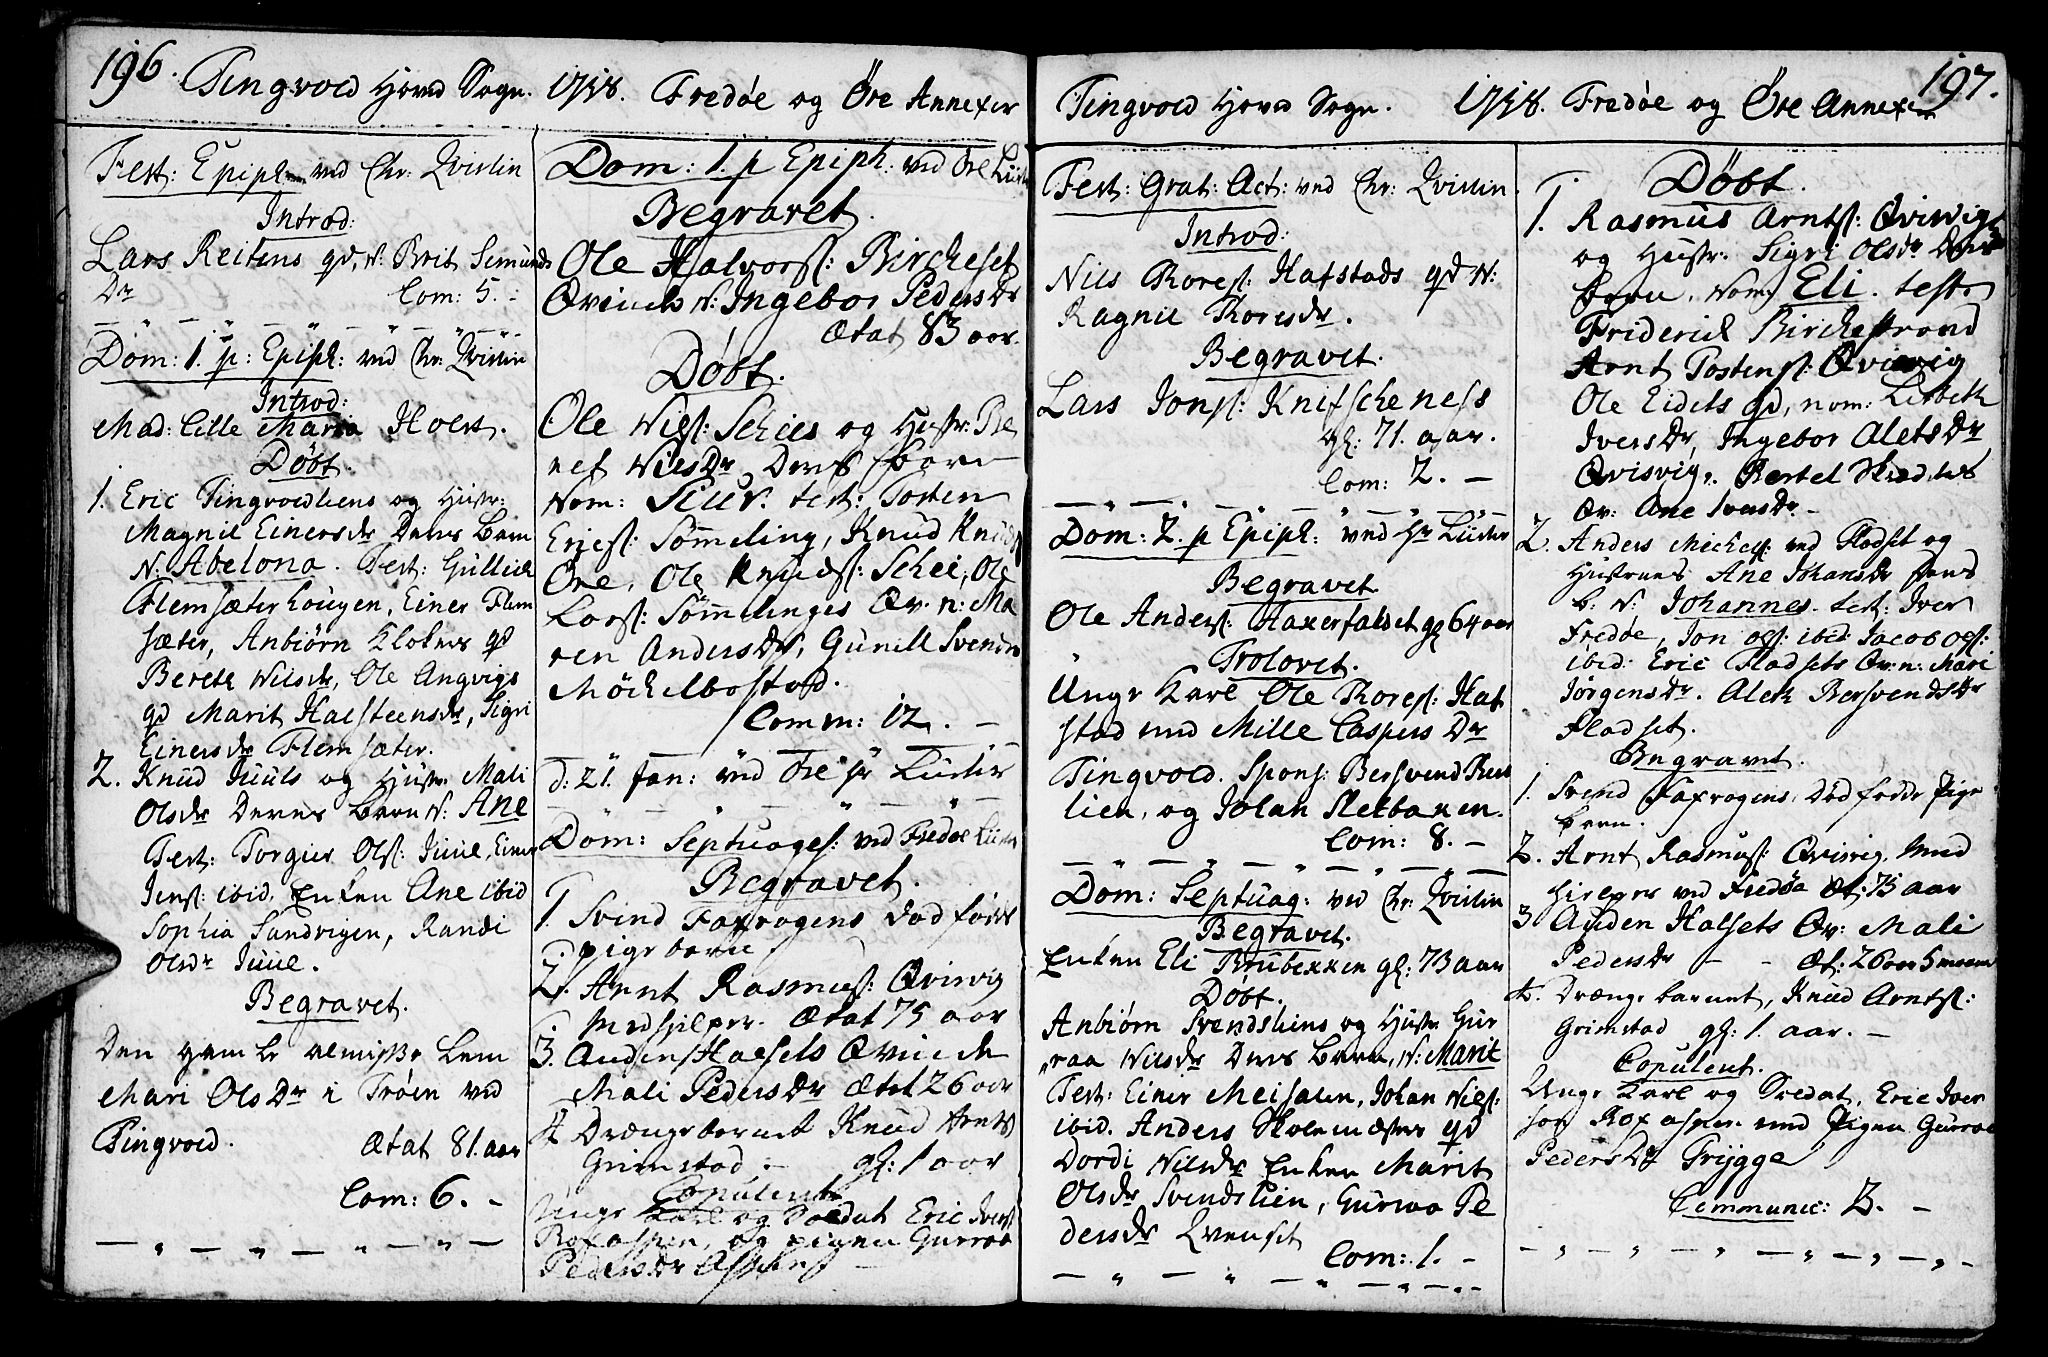 196. Tingvold Hoved Sogn. 1758. Fredøe og Öre Annexer
Fest: Epiph: ved Chr: Qvislin
Introd:
Lars Reitens qd, N: Brit Simunds
Dr Com: 5.
Dom: 1. p: Epiph: ved Chr: Qvislin
Introd:
Mad: Cille Maria Holst.
Döbt.
1. Eric Tingvoldliens og Hustr:
Magnil Einersdr Deres Barn
N. Abelona. Test: Gullich
Flemsæterhougen, Einer Flem
sæter, Anbiørn Klokers qd
Berete Nilsdr, Ole Angvigs
qd Marit Halsteensdr, Sigri
Einersdr Flemsæter.
2. Knud Juuls og Hustr: Mali
Olsdr Deres Barn N: Ane
Test: Torgier Ols: Juul, Einer
Jens: ibid, Enken Ane ibid
Sophia Sandvigen, Randi
Olsdr Juul.
Begravet.
Den gamle almisse Lem
Mari Ols Dr i Trøen ved
Tingvold. Ætat 81. aar
Com: 6. -
Dom: 1. p Epiph: ved Öre
Begravet.
Ole Halvors: Bircheset
Qvinde N: Ingebor Peders Dr
Ætat 83 aar.
Döbt.
Ole Nils: Schies og Hustr: Be
ret Nils Dr Deres Barn
Nom: Siur. test: Tosten
Erics: Sommeling, Knud Knuds
Öre, Ole Knuds: Schei, Ole
Lars: Sömmelinges Qv. n: Ma
ren Anders Dr, Gunill Svends
Möchelbostad.
Comm: 12. -
d: 21. Jan: ved Öre Hr
Dom: Septuages: ved Fredøe
Begravet.
1. Svend Faxvogens Dødfödde
pigebarn
2. Arnt Rasmus: Qvisvig
Medhielper. Ætat 75 aar
3. Audens Halsets Qvinde
Mali Peders Dr Ætat 26 aar
4 Drængebarnet Knud Arnts
Grimstad - gl: 1 aar
Copulent
Unge Karl og Soldat Eric Ivers
Roxaspen, og pigen Gurroe
Peders Dr
197.
Tingvold Hoved Sogn. 1758. Fredøe og Öre Annexer
Fest: Grat: Act: ved Chr: Qvislin.
Introd:
Nils Thores: Hafstads qd N:
Ragnil Thoresdr.
Begravet.
Lars Jons: Knifscheness
gl: 71. aar.
Com: 2. -
Dom: 2. p Epiph: ved Hr
Begravet
Ole Anders: Haxerfaldet gl 64 aar
Trolovet.
Unge Karl Ole Thores: Haf
stad med Mille Caspers Dr
Tingvold. Spons: Bersvend
lien, og Johan Sletbaken.
Com: 8. -
Dom: Septuag: ved Chr: Qvislin
Begravet.
Enken Eli Brubexken gl: 73 aar
Döbt.
Anbiørn Svendsliens og Hustr: Gur
raa Nilsdr Deres Barn, N: Marit
Test: Einer Meisalen, Johan Nils:
ibid. Anders Holemæters qd
Dordi Nilsdr Enken Marit
Olsdr Svendslien, Guroa Pe
dersdr Qvenset
Com: 1. -
Döbt.
1. Rasmus Arnts: Qvisvig
og Hustr: Sigri Olsdr Deres
Barn. Nom: Eli. test:
Friderich Birchestrand
Arnt Tostens: Qvisvig
Ole Eidets qd, nom: Lisbeth
Ivers Dr, Ingebor Alets Dr
Qvisvig. Bertel
Qv: Ane Iversdr -
2. Anders Michels: ved Fladset og
Hustrues Ane Johansdr Deres
b: N: Johannes. test: Iver
Fredøe, Jon Ols: ibid Jacob Ols:
ibid: Eric Fladsets Qv: n: Mari
Jørgensdr. Aleth Bersvendsdr
Fladset.
Begravet.
1. Svend Faxvogens Dødfödde Pige
barn.
2. Arnt Rasmus: Qvisvig, Med
hielper ved Fredöe Æt: 75 aar
3. Auden Halsets Qv: Mali
Pedersdr - - Æt: 26 aar 5 maan
4. Drænge barnet, Knud Arnts:
Grimstad gl: 1. aar. -
Copulent.
Unge Karl og Soldat, Eric Iver
søn Roxaspen med Pigen Gurroe
Peders Dr Trygge
Communic: 3. -